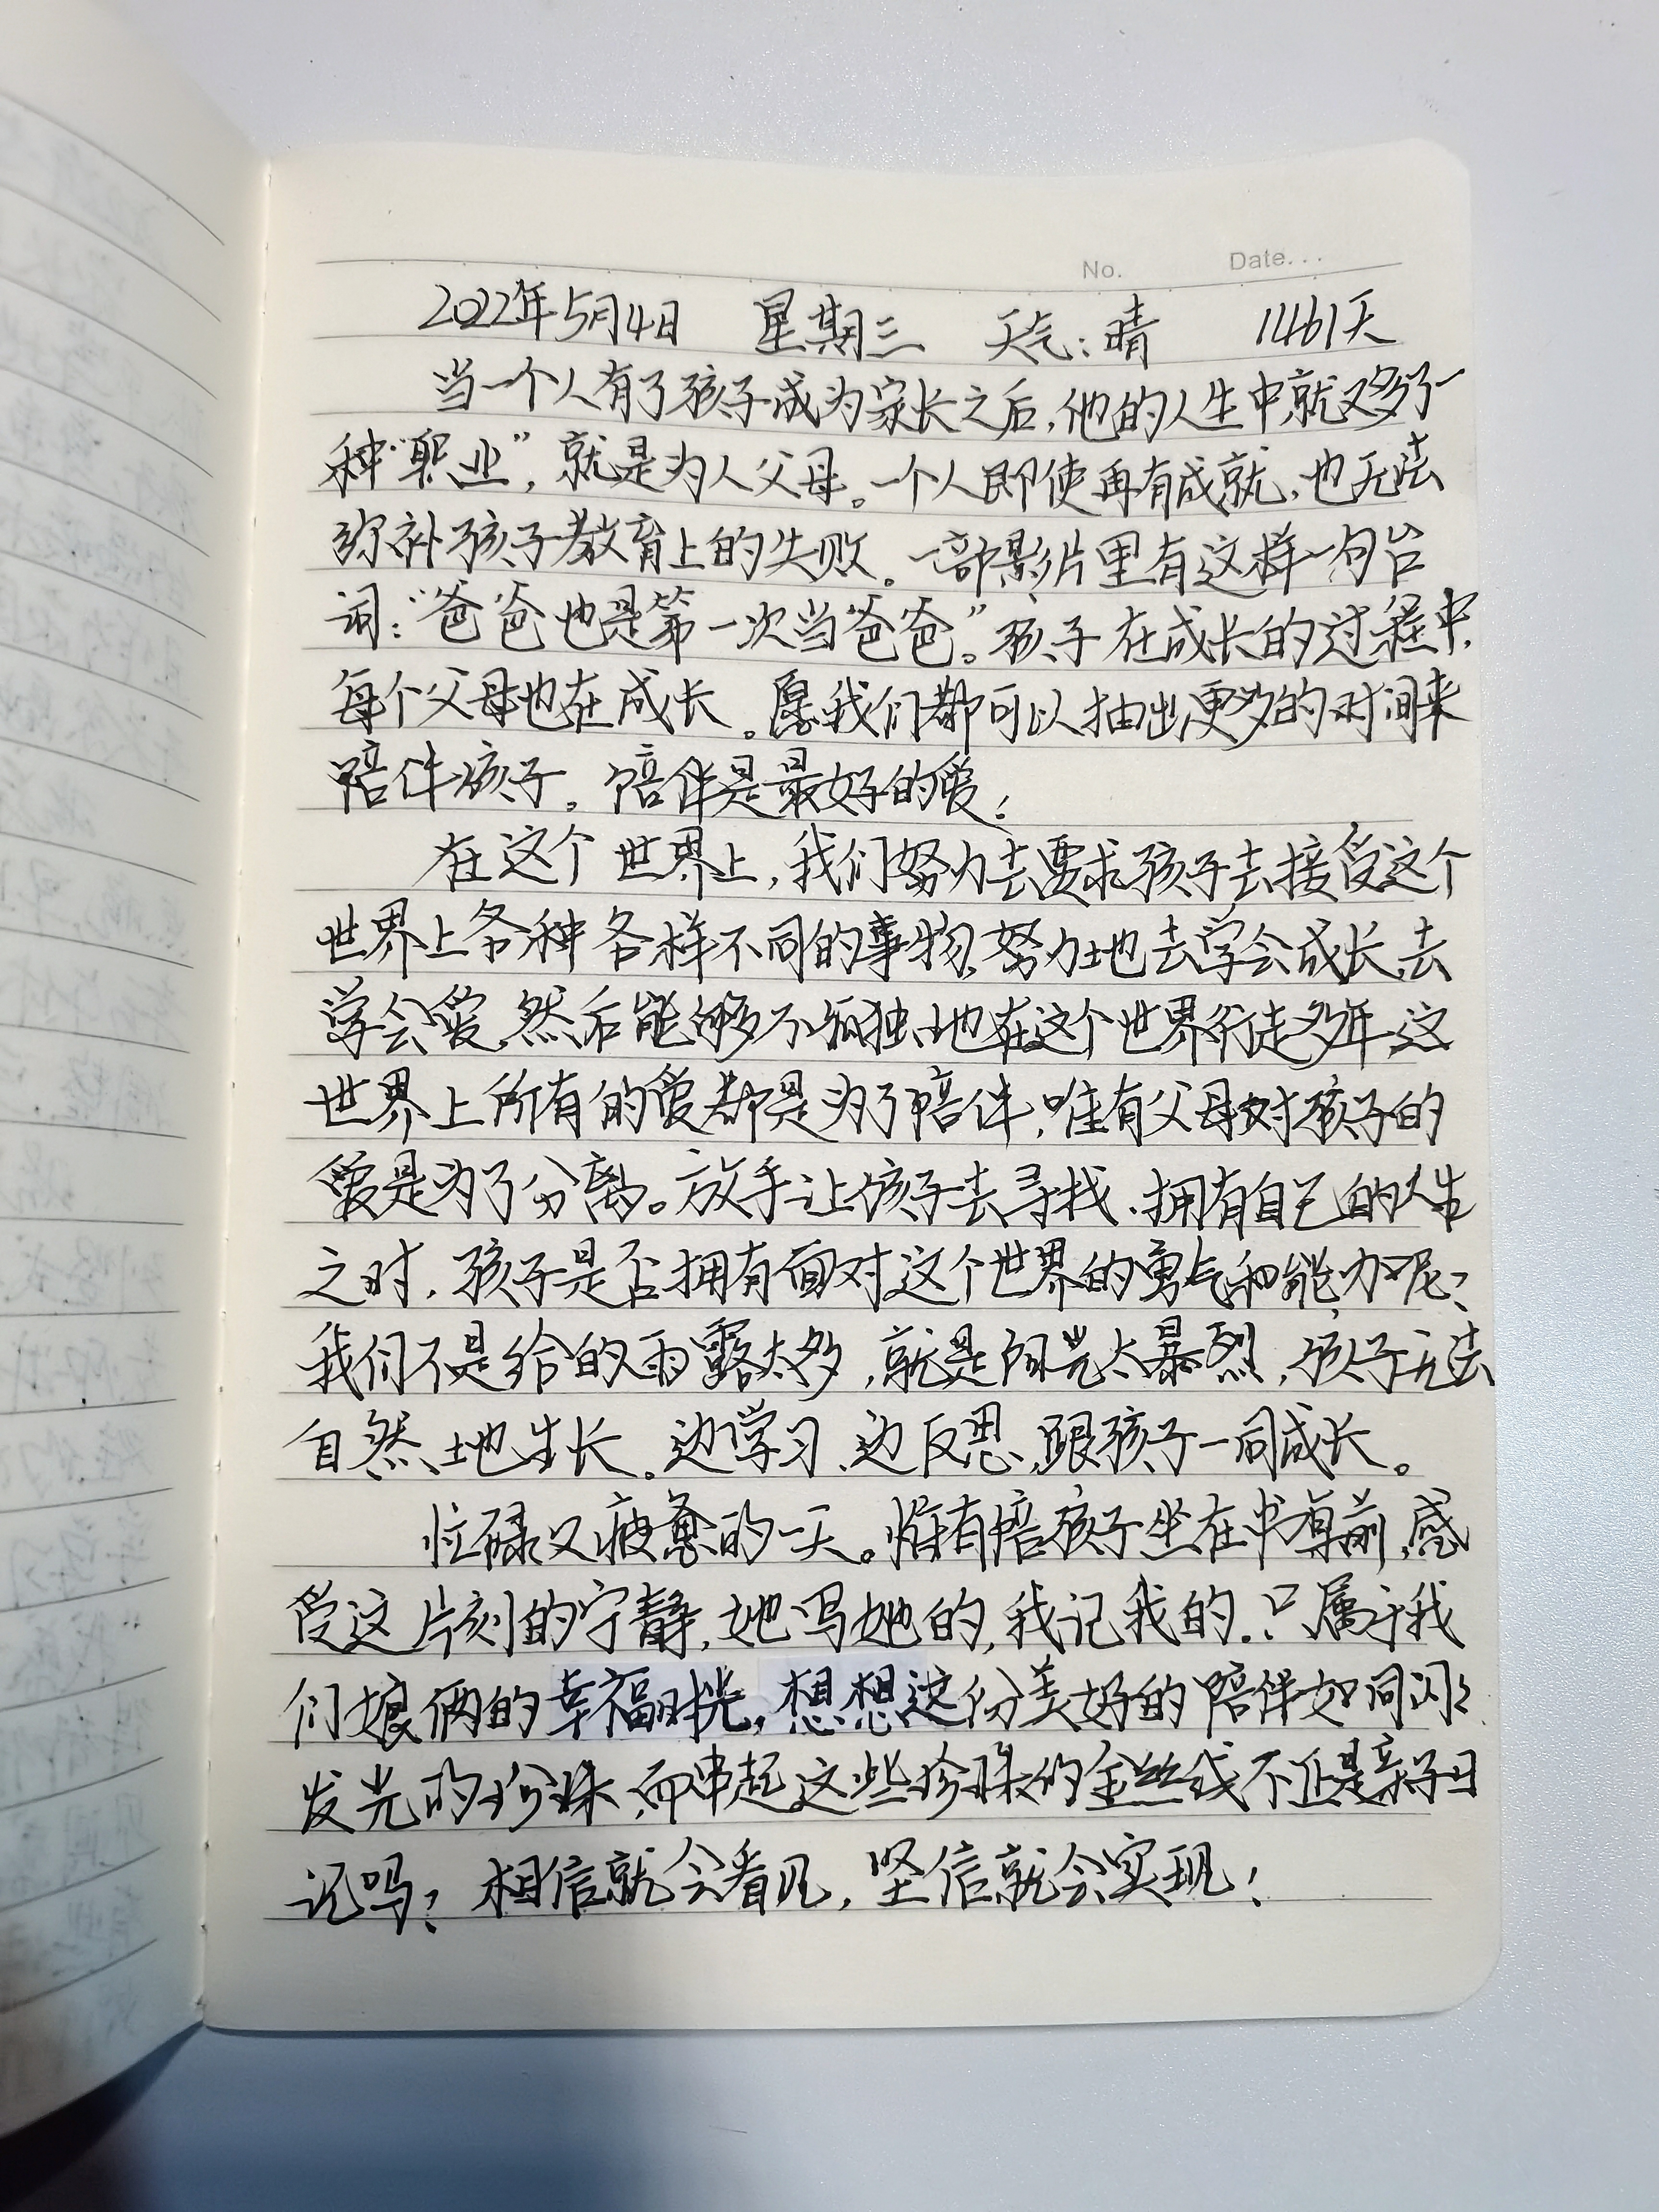 No. Date...
2022年5月4日 星期三 天气:晴 1461天
当一个人有了孩子成为家长之后,他的人生中就又多了一
种“职业”,就是为人父母。一个人即使再有成就,也无法
弥补孩子教育上的失败。一部影片里有这样一句台
词:“爸爸也是第一次当爸爸。”孩子在成长的过程中,
每个父母也在成长。愿我们都可以抽出更多的时间来
陪伴孩子。陪伴是最好的爱!
在这个世界上,我们努力去要求孩子去接受这个
世界上各种各样不同的事物,努力地去学会成长,去
学会爱,然后能够不孤独地在这个世界行走多年,这
世界上所有的爱都是为了陪伴,唯有父母对孩子的
爱是为了分离。放手让孩子去寻找、拥有自己的人生
之时,孩子是否拥有面对这个世界的勇气和能力呢?
我们不是给的雨露太多,就是阳光太暴烈,孩子无法
自然地生长。边学习、边反思,跟孩子一同成长。
忙碌又疲惫的一天。惟有陪孩子坐在书桌前,感
受这片刻的宁静,她写她的,我记我的.只属于我
们娘俩的幸福时光,想想这份美好的陪伴如同闪闪
发光的珍珠,而串起这些珍珠的金丝线不正是亲子日
记吗?相信就会看见,坚信就会实现!